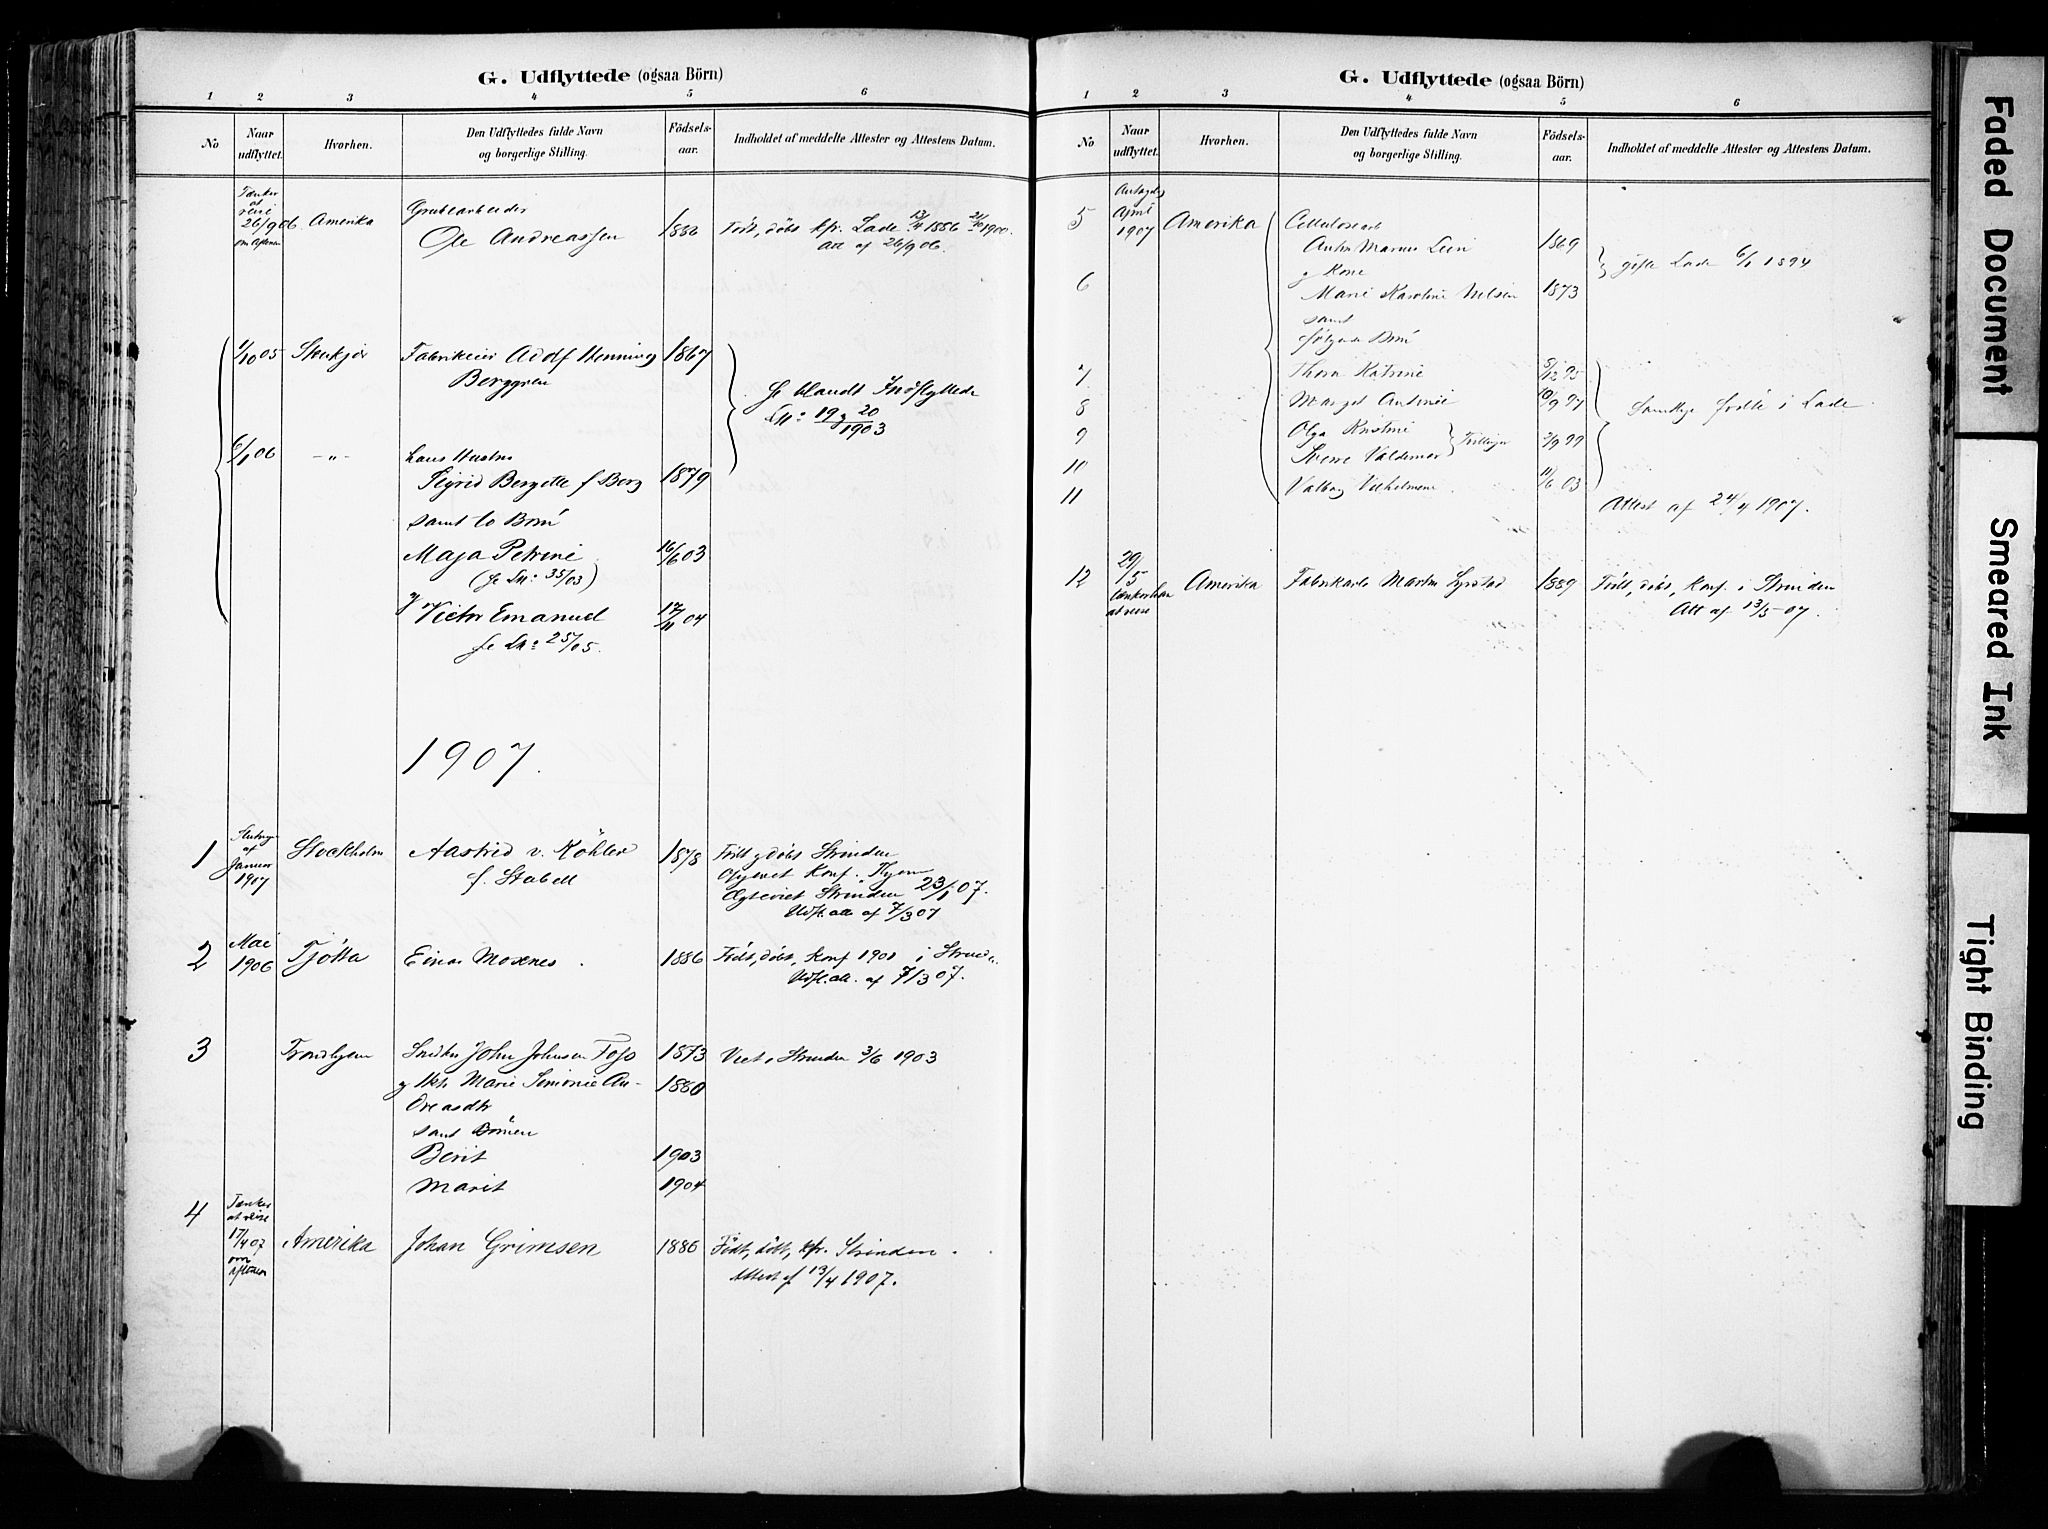 G. Udflyttede (ogsaa Börn)
1 2 3 4 5 6
No
Naar udflyttet.
Hvorhen.
Den Udflyttedes fulde Navn
og borgerlige Stilling.
Födsels-
aar.
Indholdet af meddelte Attester og Attestens Datum.
Tænker
at
reise
26/9 06
om Aftenen
Amerika
Grubearbeider
Ole Andreassen
1886
Födt, döbt kfr. Lade 13/4 1886 1900.
Att af 26/9 06.
1/10 05
Stenkjær
Fabrikeier Adolf Henning
Berggren
1867
Se blandt Indflyttede
Lnr: 19 g 20
1903
6/1 06
-"-
hans Hustru
Sigrid Bergette f Berg
1879
samt to Börn
Maja Petrine
16/6 03
(se Lnr: 35/03)
g Victor Emanuel
17/11 04
se Lnr: 25/05.
1907.
1
af
Januar
1907
Stockholm
Aastrid v. Köhler
f. Stabell
1878
Födt g döbt Strinden
Conf. Thjem
Ægteviet Strinden 23/1 07.
Udfl. att af 7/3 07
2
Mai
1906
Tjötta
Einar Moxnes
1886
Födt, döbt, Konf 1901 i Strinden
Udfl. att. af 7/3 07.
3
Trondhjem
Snedker John Johnsen Foss
1873
Viet i Strinden 3/6 1903
g Hst. Marie Simonie An-
dreasdtr
1880
samt Börnene
Berit
1903
Marit
1904
4
Tænker
at reise
17/4 07
om
Aftenen
Amerika
Johan Grimsen
1886
Födt, döbt, kfr. Strinden.
Attest af 13/4 1907.
G. Udflyttede (ogsaa Börn)
1 2 3 4 5 6
No
Naar
udflyttet.
Hvorhen.
Den Udflyttedes fulde Navn
og borgerlige Stilling.
Födsels-
aar.
Indholdet af meddelte Attester og Attestens Datum.
5
April
1907
Amerika
Cellulosearb
Anton Marius Lein
1869
g Kone
gifte Lade 6/1 1894
6
Marie Karoline Nilsen
1873
samt
fölgende Börn
7
Thora Katrine
8/12 95
8
Margit Antonie
10/9 97
Samtlige födte i Lade
9
Olga Kristine
Tvillinger
2/9 99
10
Sverre Valdemar
11
Valborg Vilhelmine
11/6 03
Attest af 24/4 1907.
12
29/5
tænker han
at reise
Amerika
Fabrikarb. Martin Lyrstad
1889
Födt, döbt, Konf. i Strinden
Att af 13/5-07.
Faded Document
Smeared Ink
Tight Binding